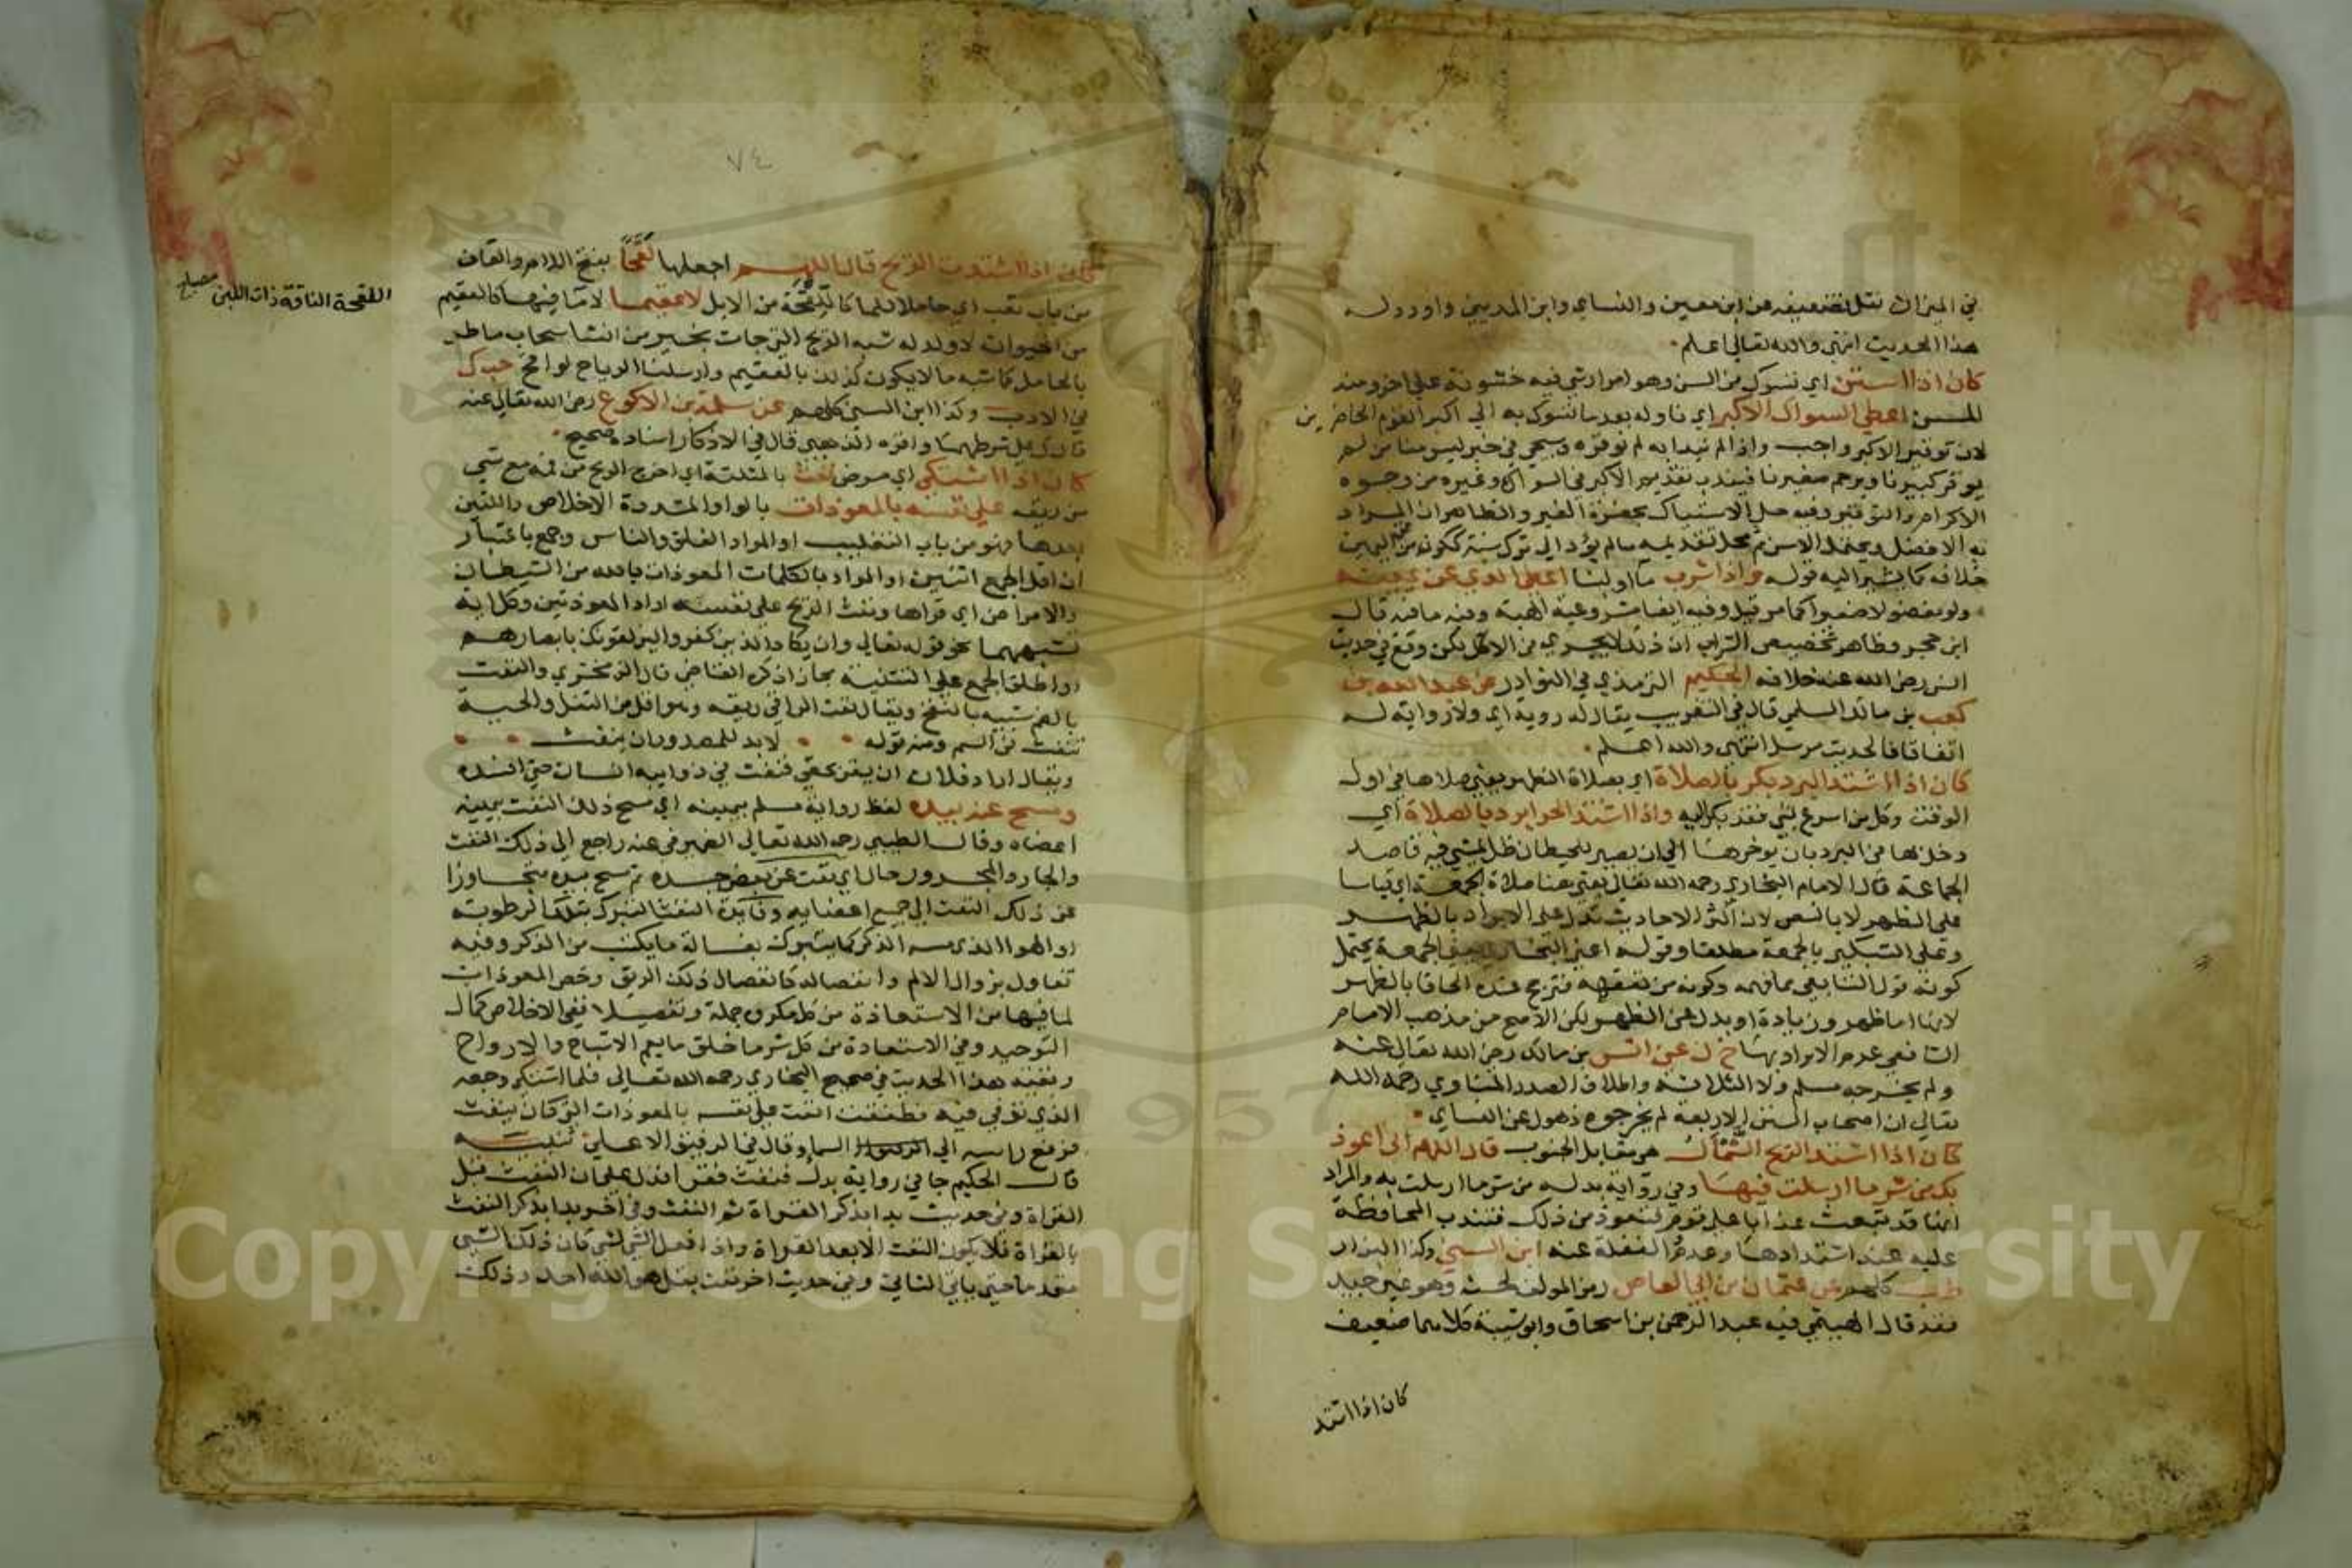 في الميزان نقل تضعيفه عن ابن معين والنساي وابن المديني واورد له
هذا الحديث انتهى والله تعالى اعلم
كان اذا استن اي تسوك من السن وهو امرار شي فيه خشونة على اخر ومنه
المسن اعطى السواك الاكبر اي ناوله بعد ما تسوك به الي اكبر القوم الحاضرين
لان توقير الاكبر واجب واذا لم نبدا به لم نوقره وسيجي في خبر ليس منا من لم
يوقر كبيرنا ويرحم صغيرنا فيندب تقديم الاكبر في السواك وغيره من وجوه
الاكرام والتوقير وفيه حل الاستياك بحضرة الغير والظاهر ان المراد
به الافضل ويحتمل الاسن ثم محل تقديمه ما لم يؤد الي ترك سنة ككون من عن اليمين
خلافه كما يشير اليه قوله واذا شرب ماء او لبنا اعطى الذي عن يمينه
ولو مفضولا صغيرا كما مر قبل وفيه ايضا مشروعية الهبة وفيه ما فيه قال
ابن حجر وظاهر تخصيص الشراب ان ذلك لا يجري في الاكل لكن وقع في حديث
انس رضي الله عنه خلافه الحكيم الترمذي في النوادر عن عبد الله بن
كعب بن مالك السلمي قال في التقريب يقال له روية اي ولا رواية له
اتفاقا فالحديث مرسل انتهى والله اعلم
كان اذا اشتد البرد بكر بالصلاة اي بصلاة الظهر يعني صلاها في اول
الوقت وكل من اسرع لشي فقد بكر اليه واذا اشتد الحر ابرد بالصلاة اي
دخل بها في البرد بان يوخرها الي ان يصير للحيطان ظل يمشي فيه قاصد
الجماعة قال الامام البخاري رحمه الله تعالى يعني هنا صلاة الجمعة اي قياسا
على الظهر لا بالنص لان اكثر الاحاديث تدل على الابراد بالظهر
وعلى التبكير بالجمعة مطلقا وقوله اعني البخاري يعني الجمعة يحتمل
كونه قول التابعي مما فهمه وكونه من تفقهه فترجح عنده الحاقا بالظهر
لانها اما ظهر وزيادة او بدل عن الظهر لكن الاصح من مذهب الامام
الشافعي عدم الابراد بها خ ن عن انس بن مالك رضي الله تعالى عنه
ولم يخرجه مسلم ولا الثلاثة واطلاق الصدر المناوي رحمه الله
تعالى ان اصحاب السنن الاربعة لم يخرجوه ذهول عن النساي
كان اذا اشتد الريح الشمأل هو مقابل الجنوب قال اللهم اني اعوذ
بك من شر ما ارسلت فيها وفي رواية بدله من شر ما ارسلت به والمراد
انها قد تبعث عذابا على قوم فتعوذ من ذلك فتندب المحافظة
عليه عند اشتدادها وعدم الغفلة عنه ابن السني وكذا البزار
طب كلهم عن عثمان بن ابي العاص رمز المولف لحسنه وهو غير جيد
فقد قال الهيثمي فيه عبد الرحمن بن اسحاق وابو شيبة كلاهما ضعيف
كان اذا اشتد
٧٤
كان اذا اشتدت الريح قال اللهم اجعلها لقحا بفتح اللام والقاف
من باب تعب اي حاملا للما كاللقحة من الابل لا عقيما لا ما فيها كالعقيم
من الحيوان لا ولد له شبه الريح التي جات بخير من انشا سحاب ماطر
بالحامل كما شبه ما لا يكون كذلك بالعقيم وارسلنا الرياح لواقح حب ك
في الادب وكذا ابن السني كلهم عن سلمة بن الاكوع رضي الله تعالى عنه
قال ك على شرطهما واقره الذهبي قال في الاذكار اسناده صحيح
كان اذا اشتكى اي مرض نفث بالمثلثة اي اخرج الريح من فمه مع شي
من ريقه على نفسه بالمعوذات بالواو المشددة الاخلاص واللتين
بعدها فهو من باب التغليب او المراد الفلق والناس وجمع باعتبار
ان اقل الجمع اثنين او المراد بالكلمات المعوذات بالله من الشيطان
والامراض اي قراها ونفث الريح على نفسه او اراد المعوذتين وكل اية
تشبههما نحو قوله تعالى وان يكاد الذين كفروا ليزلقونك بابصارهم
او اطلق الجمع على التثنية مجازا ذكره القاضي قال الزمخشري والنفث
بالفم شبيه بالنفخ ويقال نفث الراقي ريقه وهو اقل من التفل والحية
تنفث من السم ومنه قوله لا بد للمصدور ان ينفث
ويقال اراد فلان ان يقر بحقي فنفث في ذوابيه انسان حتى افسده
ومسح عنه بيده لفظ رواية مسلم بيمينه اي مسح ذلك النفث بيمينه
اعضاه وقال الطيبي رحمه الله تعالى الضمير في عنه راجع الى ذلك النفث
والجار والمجرور حال اي نفث عن بعض جسده ثم مسح بيده متجاوزا
عن ذلك النفث الى جميع اعضايه وفايدة النفث التبرك بتلك الرطوبة
او الهوا الذي مسه الذكر كما يتبرك بغسالة ما يكتب من الذكر وفيه
تفاول بزوال الالم وانفصاله كانفصال ذلك الريق وخص المعوذات
لما فيها من الاستعاذة من كل مكروه جملة وتفصيلا ففي الاخلاص كمال
التوحيد وفي الاستعاذة من كل شر ما خلق ما يعم الاشباح والارواح
وبقية هذا الحديث في صحيح البخاري رحمه الله تعالى فلما اشتكى وجعه
الذي توفي فيه طفقت انفث على نفسه بالمعوذات التي كان ينفث
فرفع راسه الى السما وقال في الرفيق الاعلى تنبيه
قال الحكيم جا في رواية بدل فنفث فقرا فدل على ان النفث قبل
القراة وفي حديث بدا بذكر القراة ثم النفث وفي اخر بدا بذكر النفث
بالقراة فلا يكون النفث الا بعد القراة واذا فعل الشي لشي كان ذلك الشي
مقدما حتى ياتي الثاني وفي حديث اخر نفث بقل هو الله احد وذلك
اللقحة الناقة ذات اللبن مصباح
Copyright © King Saud University
1957